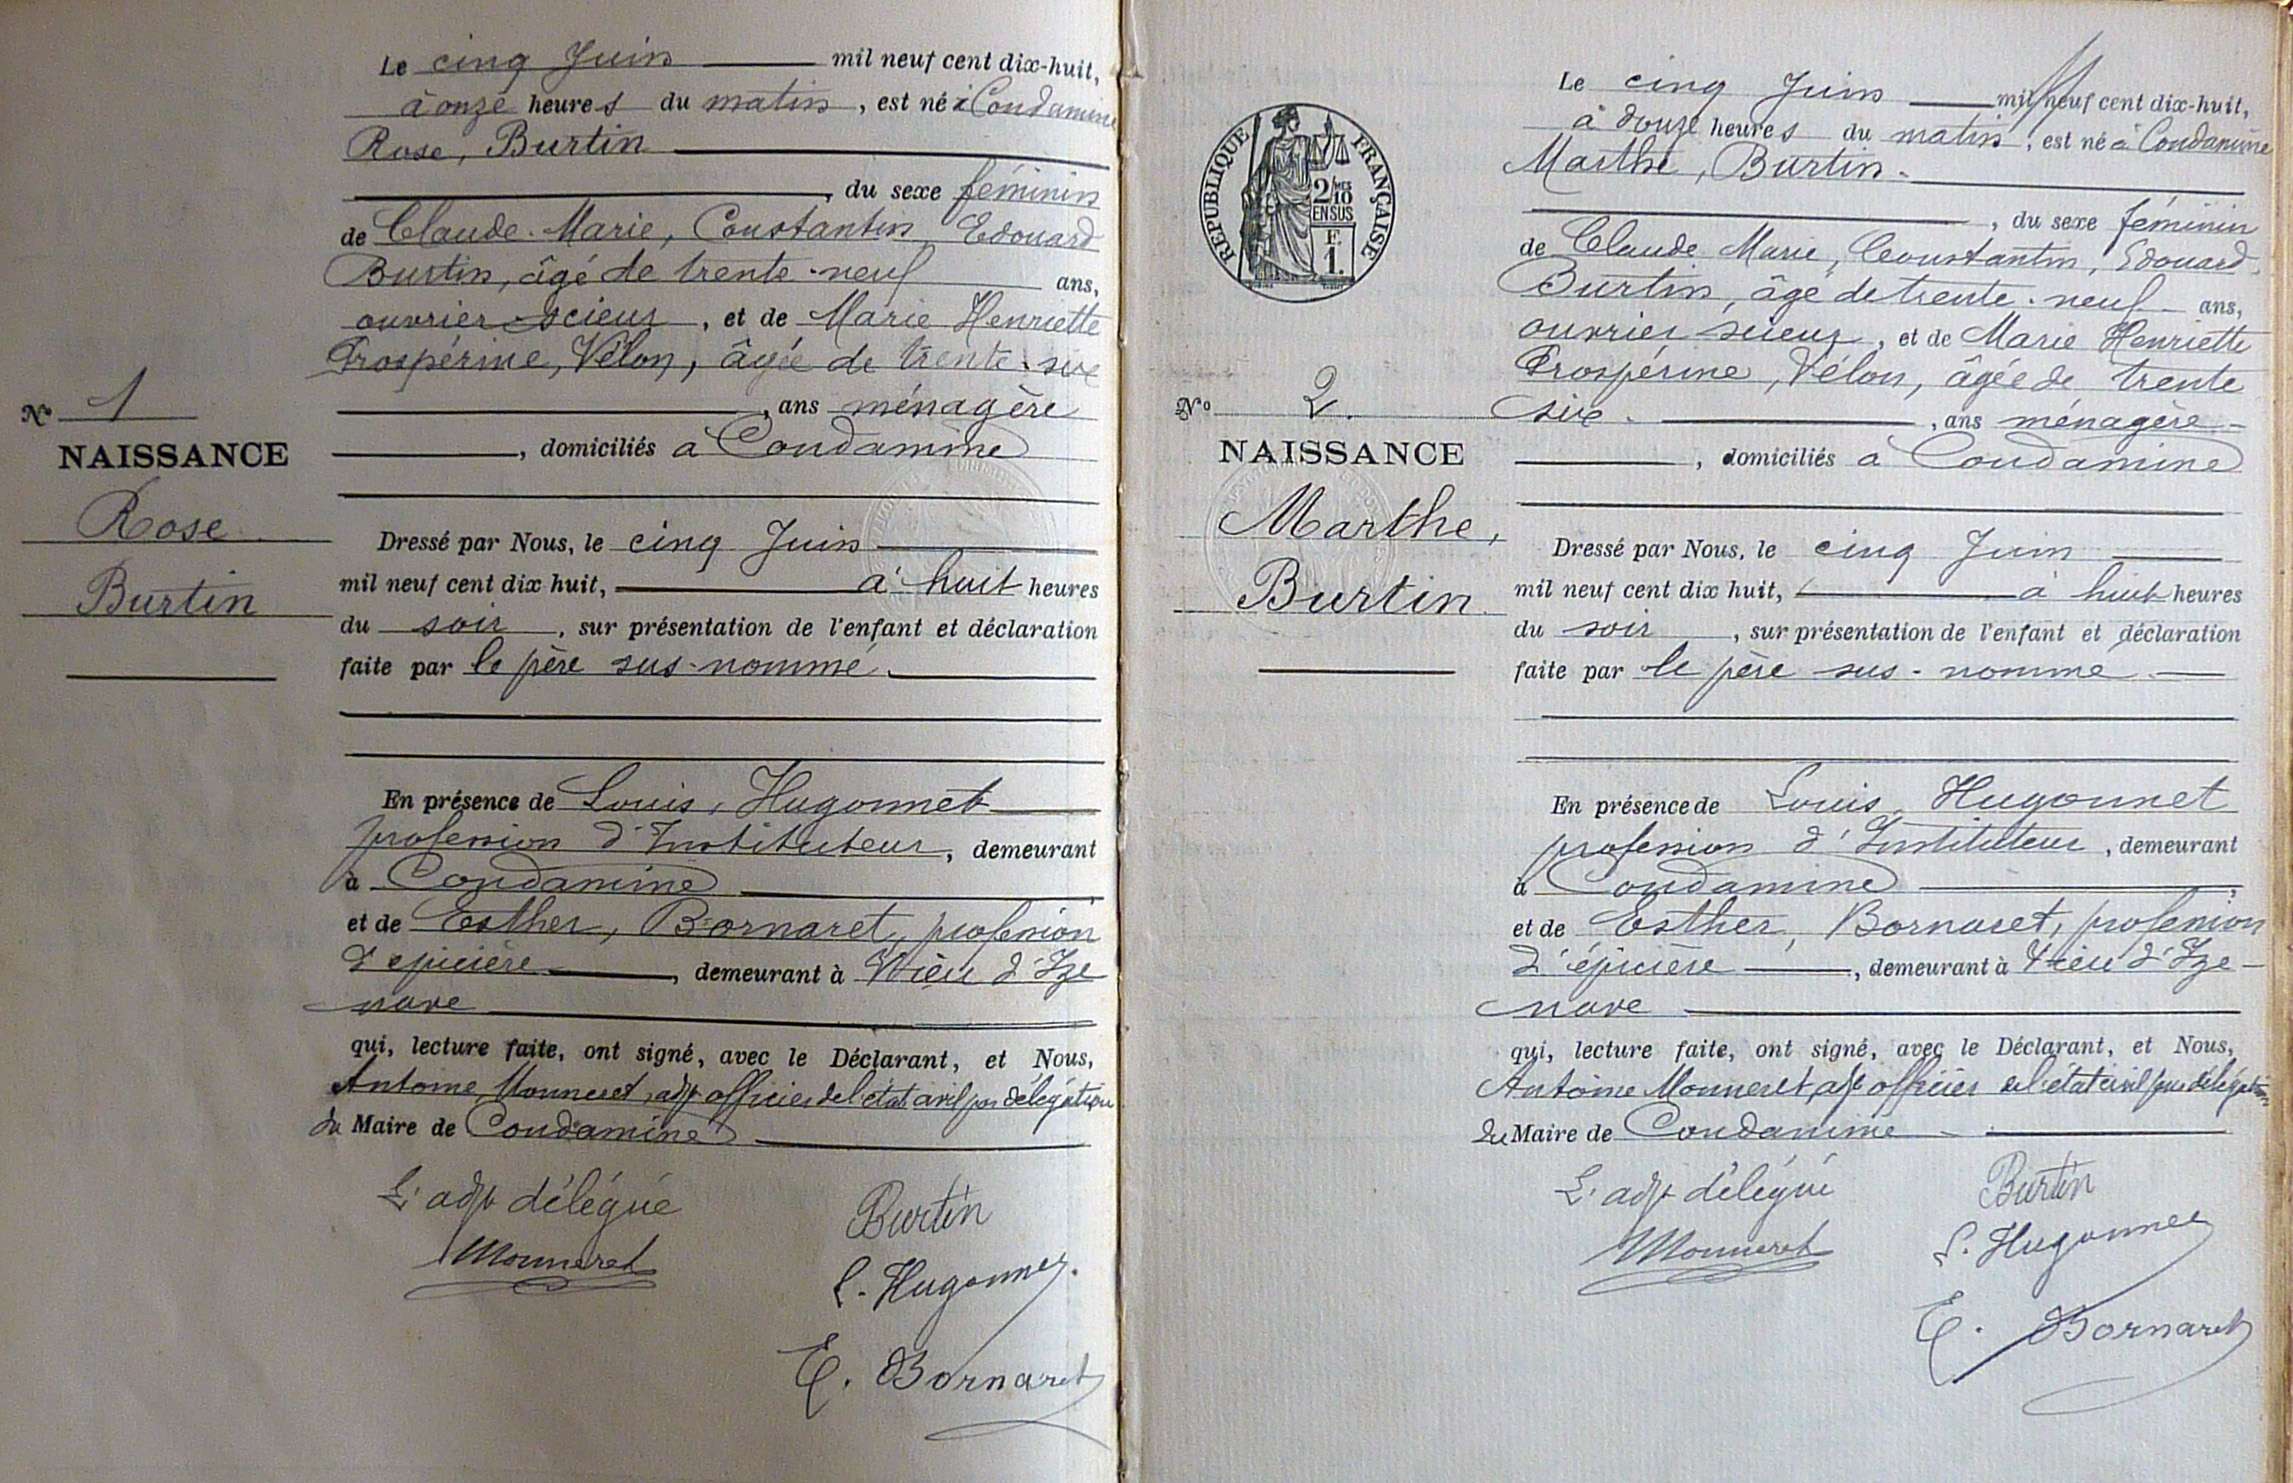 Le cinq Juin mil neuf cent dix-huit,
à onze heures du matin, est né à Condamine
Rose, Burtin
, du sexe féminin
de Claude-Marie, Constantin, Edouard
Burtin, âgé de trente-neuf ans,
ouvrier scieur, et de Marie Henriette
Prospérine, Vélon, âgée de trente-six
, ans ménagère
, domiciliés à Condamine
N° 1
NAISSANCE
Rose
Burtin
Dressé par Nous, le cinq Juin
mil neuf cent dix huit, à huit heures
du soir, sur présentation de l'enfant et déclaration
faite par le père sus-nommé.
En présence de Louis, Hugonnet
profession d'Instituteur, demeurant
à Condamine
et de Esther, Bornaret, profession
d'epicière, demeurant à Vieu d'Ize
nave
qui, lecture faite, ont signé, avec le Déclarant, et Nous,
Antoine Monneret, adjt officier de l'état civil par délégation
du Maire de Condamine
L'adjt délégué
Monneret
Burtin
L. Hugonnet
E. Bornaret
REPUBLIQUE FRANÇAISE
2/10 MES
EN SUS
F.
1.
Le cinq Juin mil neuf cent dix-huit,
à douze heures du matin, est né à Condamine
Marthe, Burtin.
, du sexe féminin
de Claude Marie, Constantin, Edouard
Burtin, âgé de trente-neuf ans,
ouvrier scieur, et de Marie Henriette
Prospérine, Vélon, âgée de trente
six, ans ménagère
, domiciliés à Condamine
N° 2.
NAISSANCE
Marthe,
Burtin
Dressé par Nous, le cinq Juin
mil neuf cent dix huit, à huit heures
du soir, sur présentation de l'enfant et déclaration
faite par le père sus-nommé
En présence de Louis, Hugonnet
profession d'Instituteur, demeurant
à Condamine
et de Esther, Bornaret, profession
d'épicière, demeurant à Vieu d'Ize-
nave
qui, lecture faite, ont signé, avec le Déclarant, et Nous,
Antoine Monneret, adjt officier de l'état civil par délégation
du Maire de Condamine
L'adjt délégué
Monneret
Burtin
L. Hugonnet
E. Bornaret